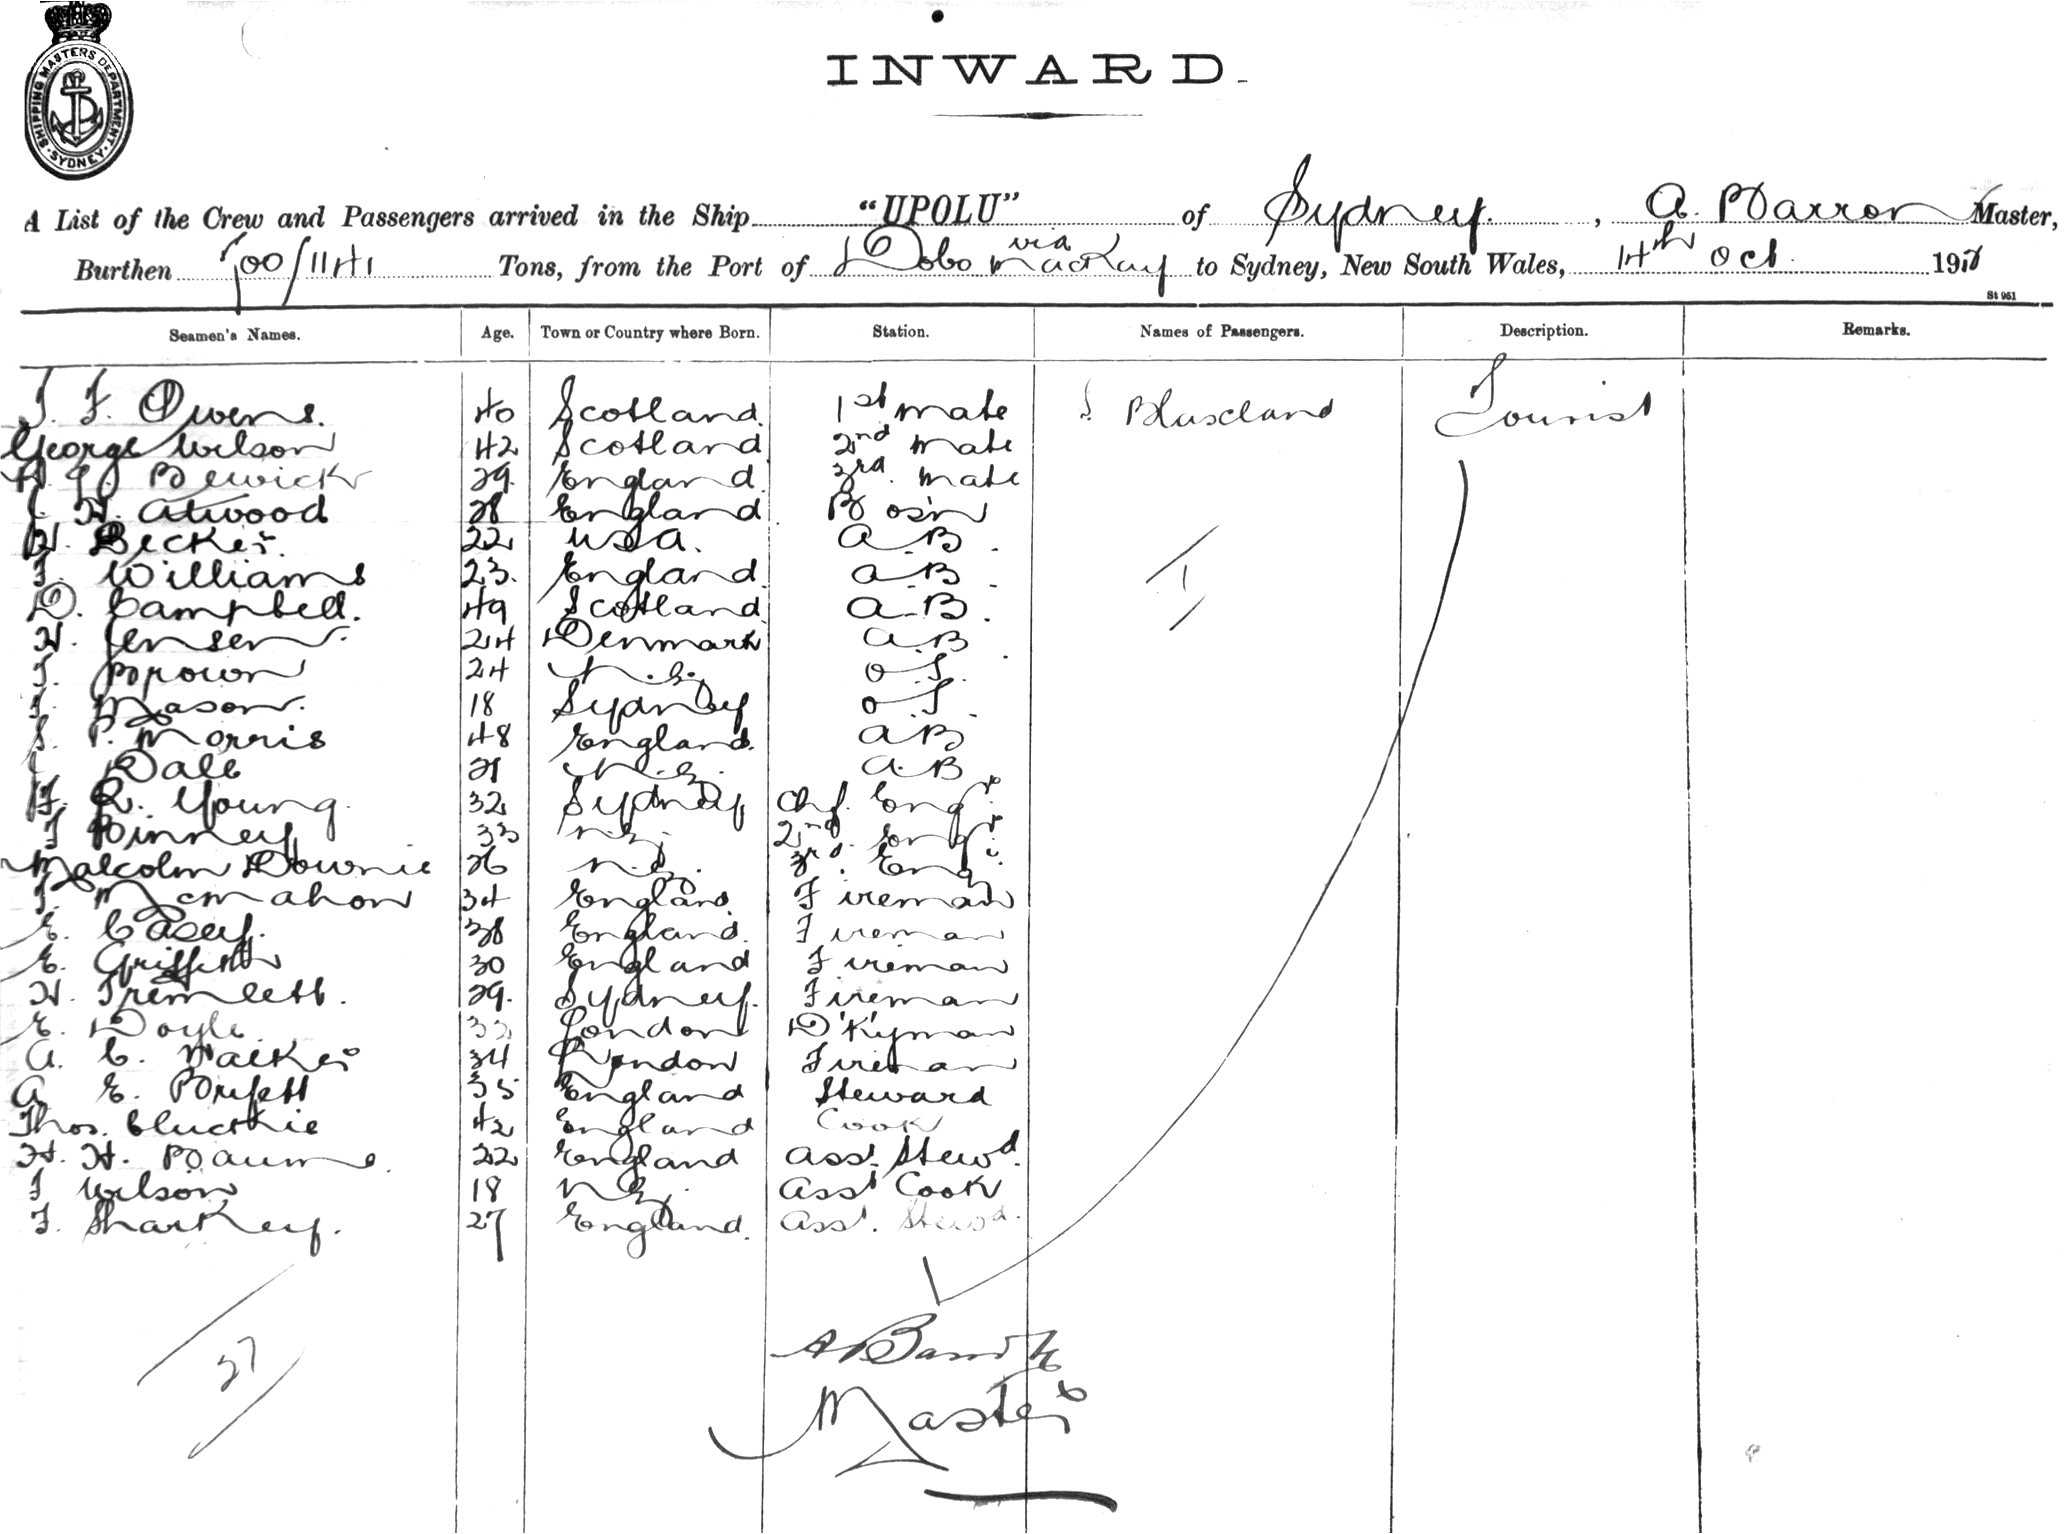 SHIPPING MASTERS DEPARTMENT. SYDNEY
INWARD.
A List of the Crew and Passengers arrived in the Ship "UPOLU" of Sydney. , A. Barron Master,
Burthen 700/1141 Tons, from the Port of Dobo via Mackay to Sydney, New South Wales, 14th Oct. 191
St 951
Seamen's Names. Age. Town or Country where Born. Station. Names of Passengers. Description. Remarks.
F. Owens. 40 Scotland. 1st mate Blaxland Tourist
George Wilson 42 Scotland 2nd mate
Bewick 29. England. 3rd. mate
H. Atwood 28 England Bosn
H. Becker. 22 USA. A.B.
Williams 23. England. A.B.
D. Campbell. 49 Scotland A.B.
H. Jensen. 24 Denmark A.B.
Brown 24 N.Z. O.S.
Mason. 18 Sydney O.S.
P. Morris 48 England. A.B.
Dale 21 N.Z. A.B
R. Young. 32 Sydney Chf. Engr.
Binney 33 N.Z. 2nd Engr.
Malcolm Downie 26 N.Z. 3rd. Engr.
McMahon 34 England. Fireman
E. Casey. 38 England. Fireman
E. Griffith 30 England Fireman
H. Tremlett. 29. Sydney. Fireman
E. Doyle 33 London D'Kyman
A. C. Walker 34 London Fireman
A E. 35 England Steward
Thos. Cluckie 42 England Cook
H. H. Baume. 22 England Asst. Stewd.
Wilson 18 N.Z. Asst Cook
F. Sharkey. 27 England. Asst. Stewd.
1
27
A Barron
Master